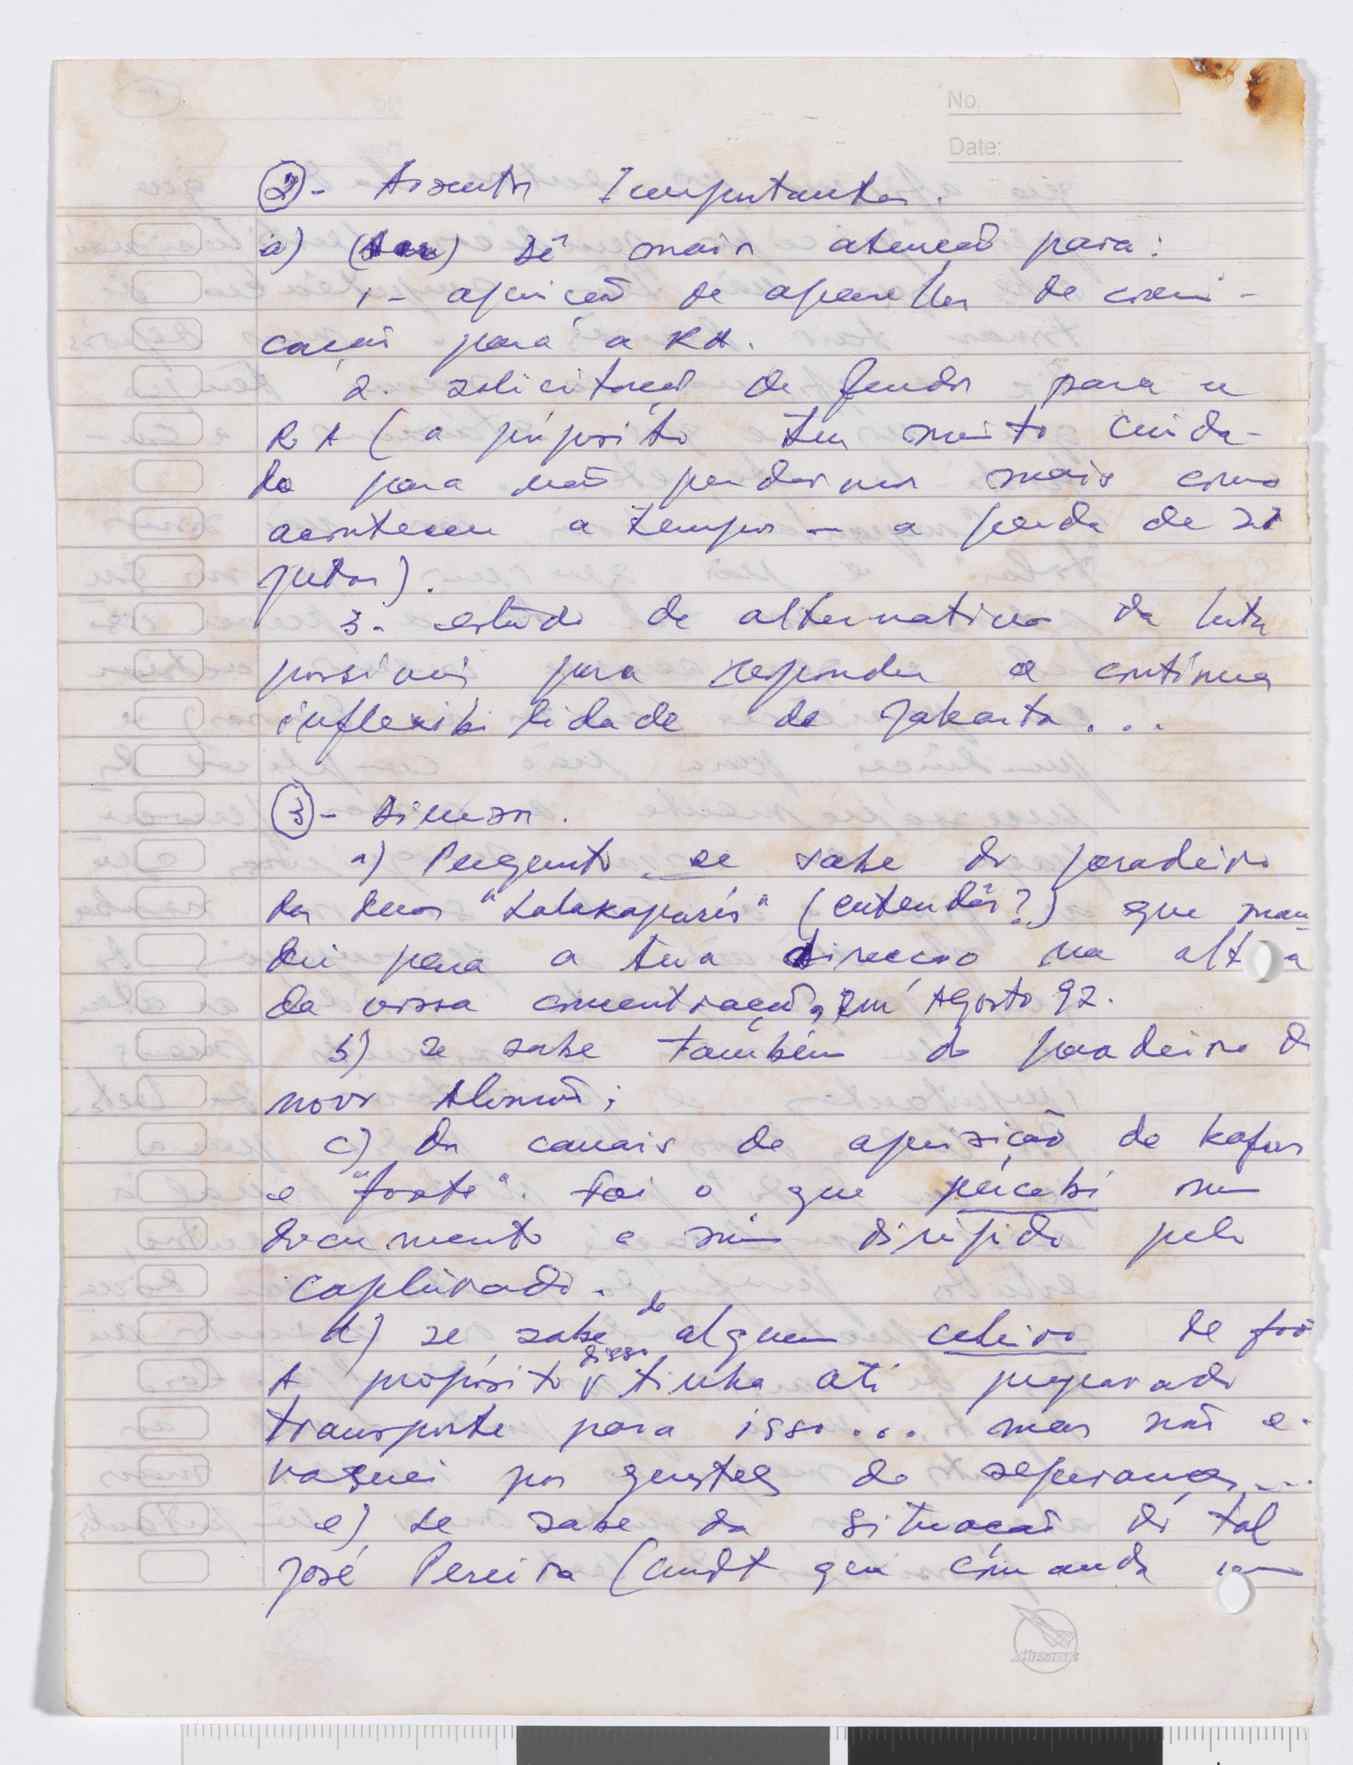 No.
Date:
② - Assuntos Importantes.
a) () Dê mais atenção para:
1 - aquisição de aparelhos de comuni-
cação para a RA.
2. solicitação de fundos para a
RA (a propósito tem muito cuida-
do para não perdermos mais como
aconteceu a tempos - a perda de
jutas).
3. estudo de alternativas da luta
possíveis para responder a contínua
inflexibilidade de Jakarta...
③ - Diversos.
a) Pergunto se sabe do paradeiro
das duas "Lalakaparis" (entendês?) que man
dei para a tua direcção na alt a
da vossa concentração, em Agosto 92.
b) se sabe também do paradeiro do
novo
c) Os canais de aquisição de kafas
e "forte". Foi o que percebi num
documento a mim dirigido pelo
capturado.
d) se sabe de algum celeiro de
A propósito disso tinha até preparado
transporte para isso... mas não e-
vaquei por questões de segurança...
e) se sabe da situação do tal
José Pereira (Cmdt que comanda um